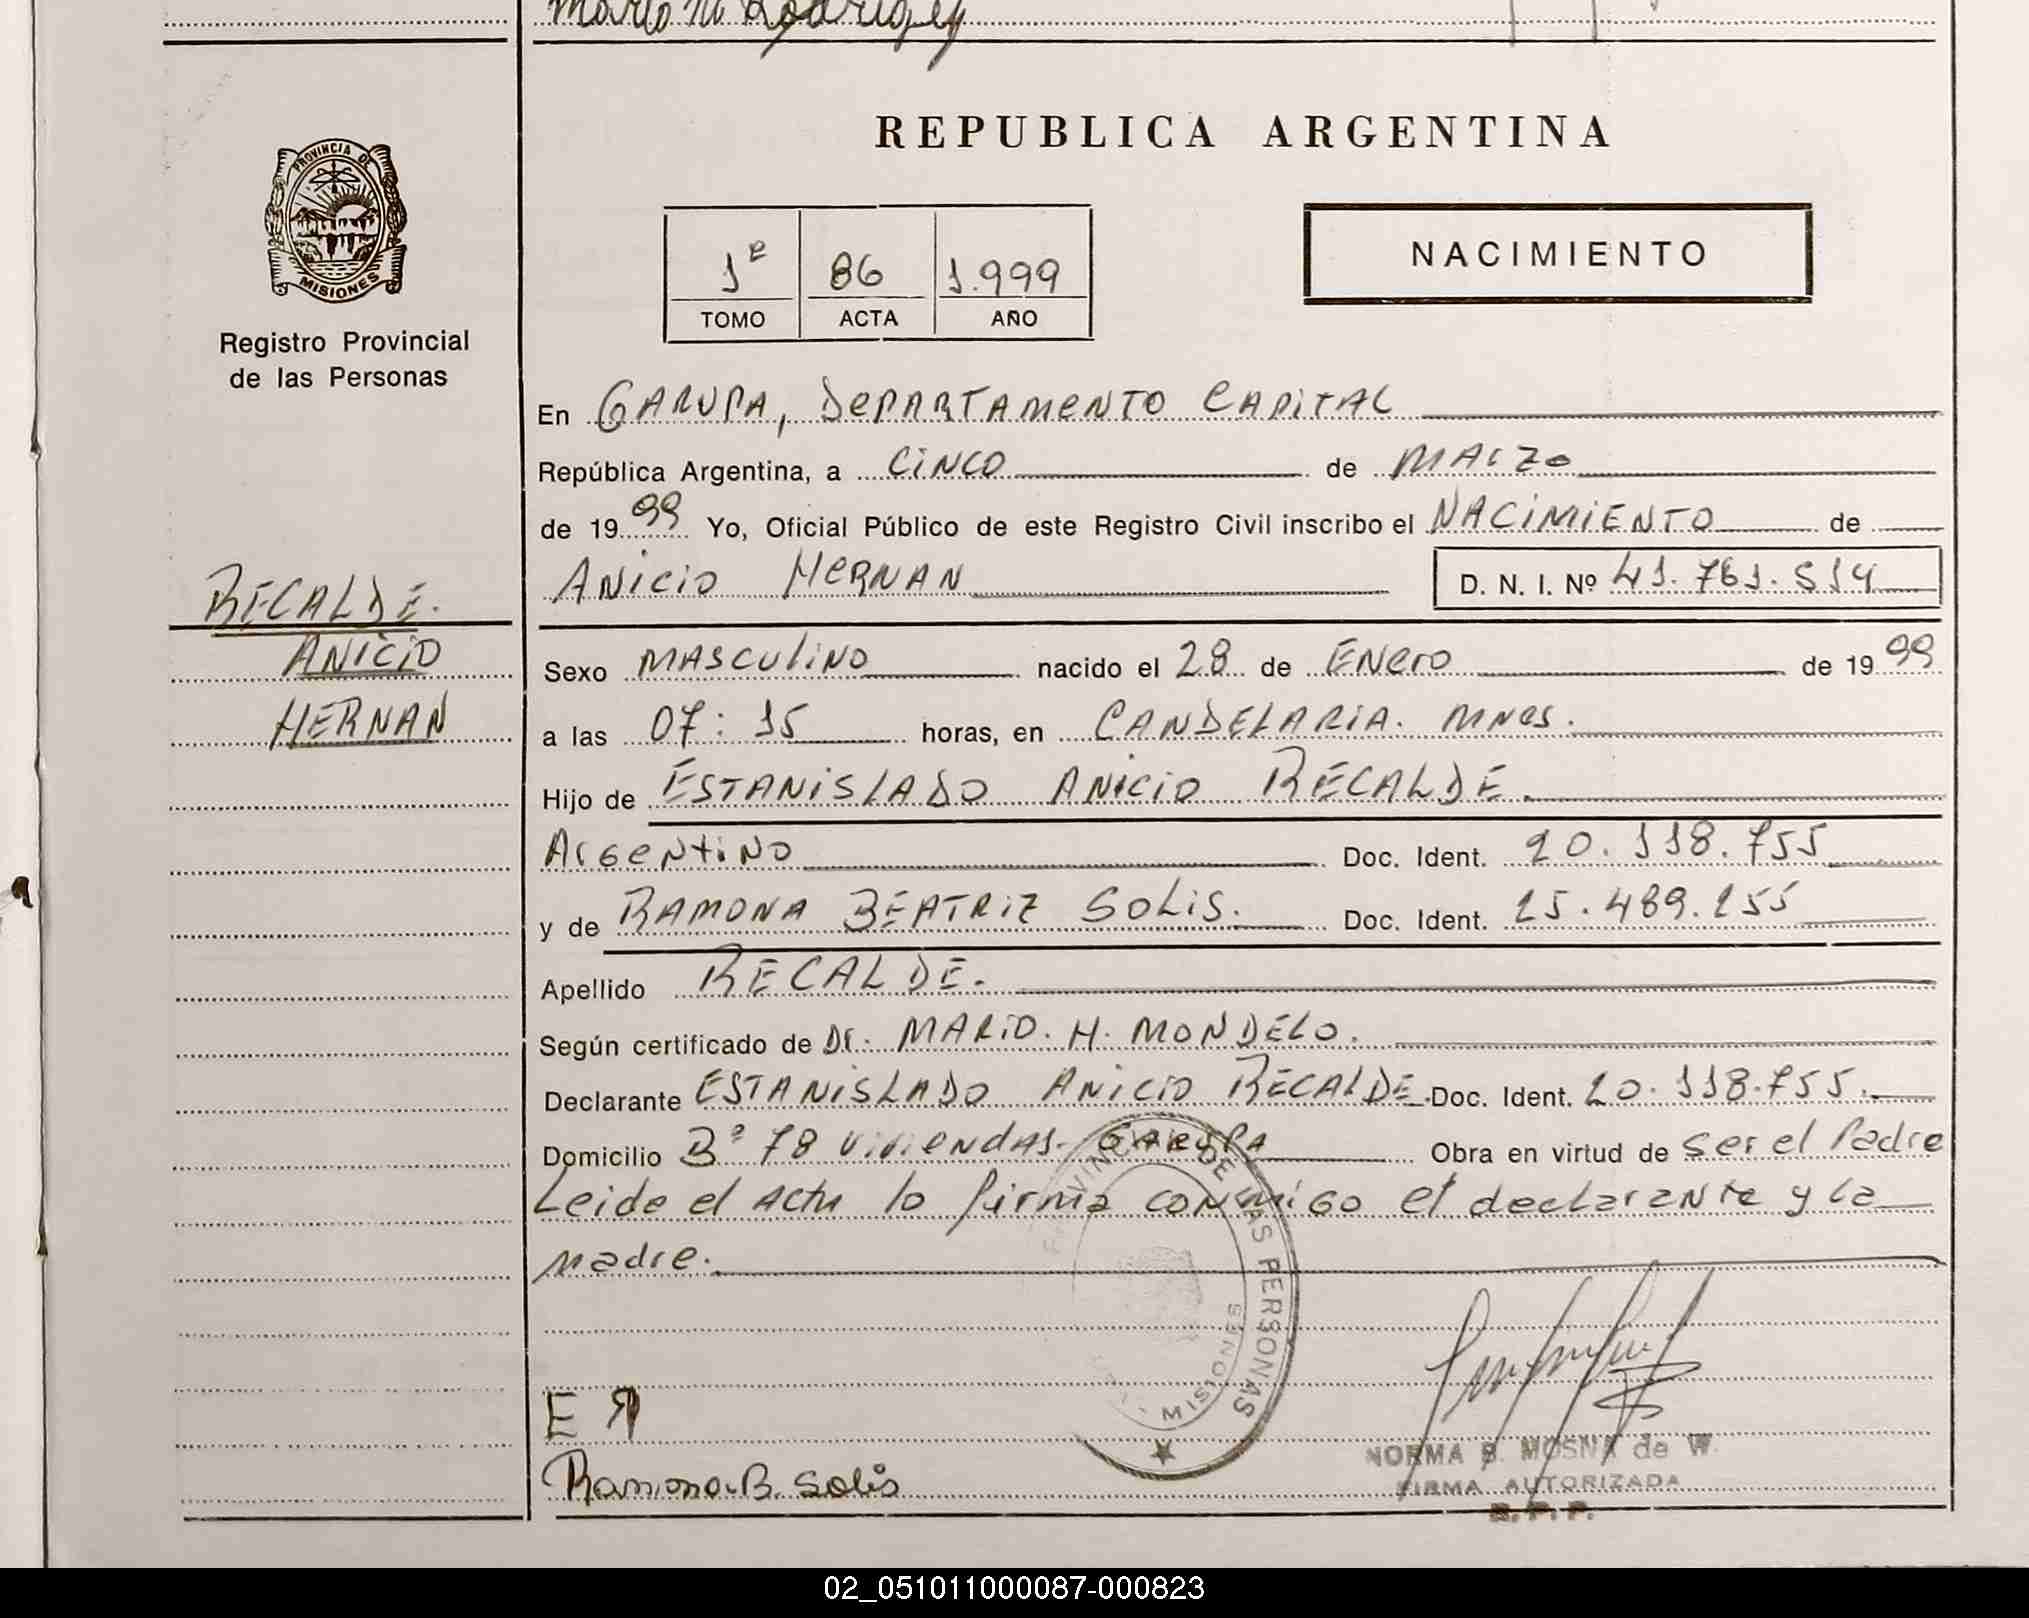 Mario M. Rodriguez
PROVINCIA DE
MISIONES
Registro Provincial
de las Personas
REPUBLICA ARGENTINA
NACIMIENTO
1º 86 1.999
TOMO ACTA AÑO
En GARUPA, DEPARTAMENTO CAPITAL
República Argentina, a CINCO de MARZO
de 1999 Yo, Oficial Público de este Registro Civil inscribo el NACIMIENTO de
ANICIO HERNAN D. N. I. Nº 41.761.514
RECALDE.
ANICIO
HERNAN
Sexo MASCULINO nacido el 28 de ENERO de 1999
a las 07:15 horas, en CANDELARIA. MNES.
Hijo de ESTANISLADO ANICIO RECALDE.
Argentino Doc. Ident. 20.118.755
y de RAMONA BEATRIZ SOLIS. Doc. Ident. 25.489.255
Apellido RECALDE.
Según certificado de Dr. MARIO. H. MONDELO.
Declarante ESTANISLADO ANICIO RECALDE. Doc. Ident. 20.118.755.
Domicilio Bº 78 viviendas. GARUPA Obra en virtud de ser el Padre
Leida el acta lo firma conmigo el declarante y la
madre.
PROVINCIAL DE LAS PERSONAS
MISIONES
E R
Ramona B. Solis
NORMA B. MOSNA de W.
FIRMA AUTORIZADA
R. P. P.
02_051011000087-000823